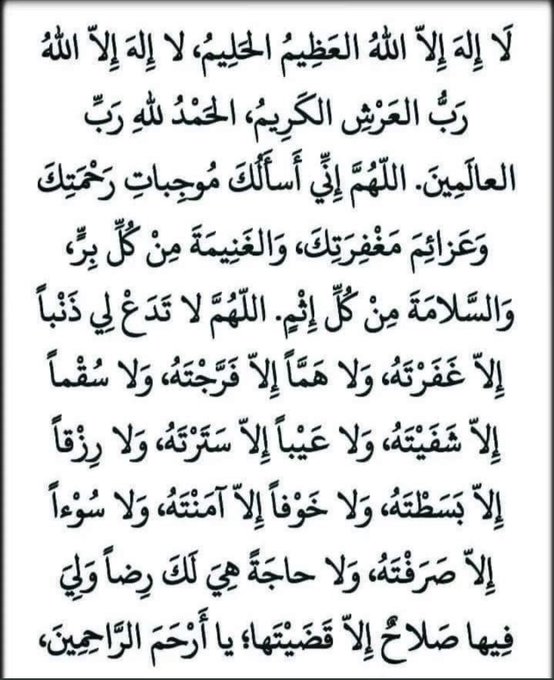 لَا إِلهَ إِلاّ اللهُ العَظِيمُ الحَلِيمُ، لا إِلهَ إِلاّ اللهُ
رَبُّ العَرْشِ الكَرِيمُ، الحَمْدُ للهِ رَبِّ
العالَمِينَ. اللّهُمَّ إِنِّي أَسأَلُكَ مُوجِباتِ رَحْمَتِكَ
وَعَزائِمَ مَغْفِرَتِكَ، وَالغَنِيمَةَ مِنْ كُلِّ بِرٍّ،
وَالسَّلامَةَ مِنْ كُلِّ إِثْمٍ. اللّهُمَّ لا تَدَعْ لِي ذَنْباً
إِلاّ غَفَرْتَهُ، وَلا هَمَّاً إِلاّ فَرَّجْتَهُ، وَلا سُقْماً
إِلاّ شَفَيْتَهُ، وَلا عَيْباً إِلاّ سَتَرْتَهُ، وَلا رِزْقاً
إِلاّ بَسَطْتَهُ، وَلا خَوْفاً إِلاّ آمَنْتَهُ، وَلا سُوْءاً
إِلاّ صَرَفْتَهُ، وَلا حاجَةً هِيَ لَكَ رِضاً وَلِيَ
فِيها صَلاحٌ إِلاّ قَضَيْتَها؛ يا أَرْحَمَ الرَّاحِمِينَ،